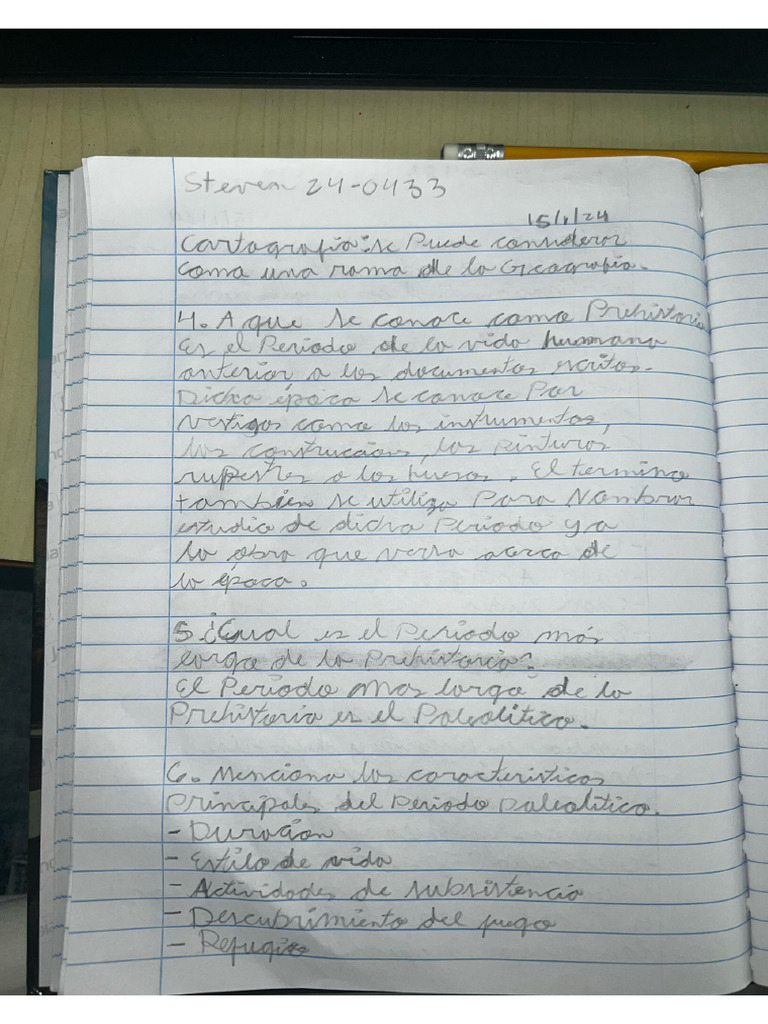 Steven 24-0433
15/1/24
Cartografía: se Puede considerar
como una rama de la Geografía.
4. A que se conoce como Prehistoria
Es el Periodo de la vida humana
anterior a los documentos escritos.
Dicha época se conoce Por
vestigos como los instrumentos,
las construcciones, las Pinturas
rupestres o los huesos. El termino
también se utiliza Para Nombrar
estudio de dicho Periodo y a
la obra que versa acerca de
la época.
5 ¿Cual es el Periodo más
largo de la Prehistoria?
El Periodo mas largo de la
Prehistoria es el Paleolitico.
6. Menciona las caracteristicas
Principales del Periodo Paleolitico.
- Duración
- Estilo de vida
- Actividades de subsistencia
- Descubrimiento del fuego
- Refugios